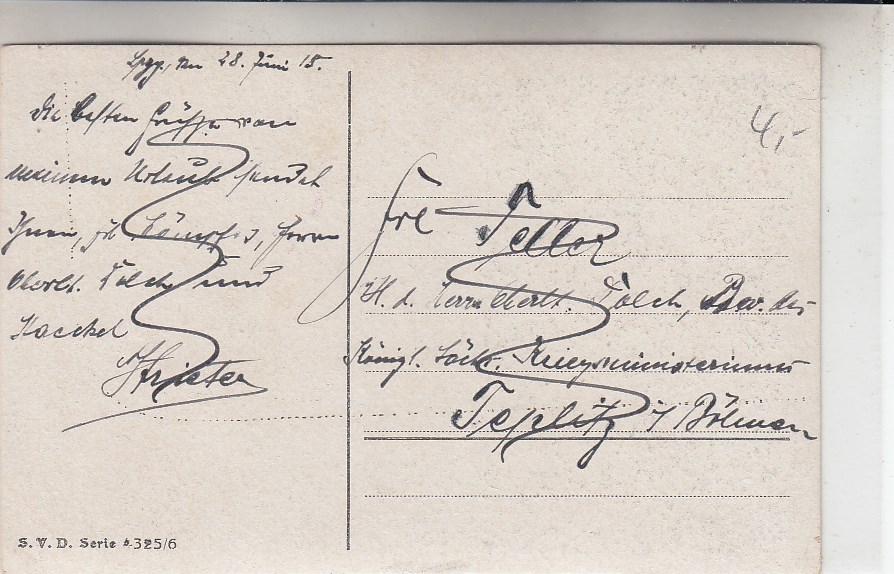 28. Juni 18.
die besten Grüsse von
meinem Urlaub sendet
Ihnen, Herrn
Oberlt. Tölch und
Haeckel
4,-
Frl Teller
Herrn Oberlt. Tölch, Bev. des
Königl. Sächs. Kriegsministeriums
Teplitz i/ Böhmen
S. V. D. Serie 4325/6